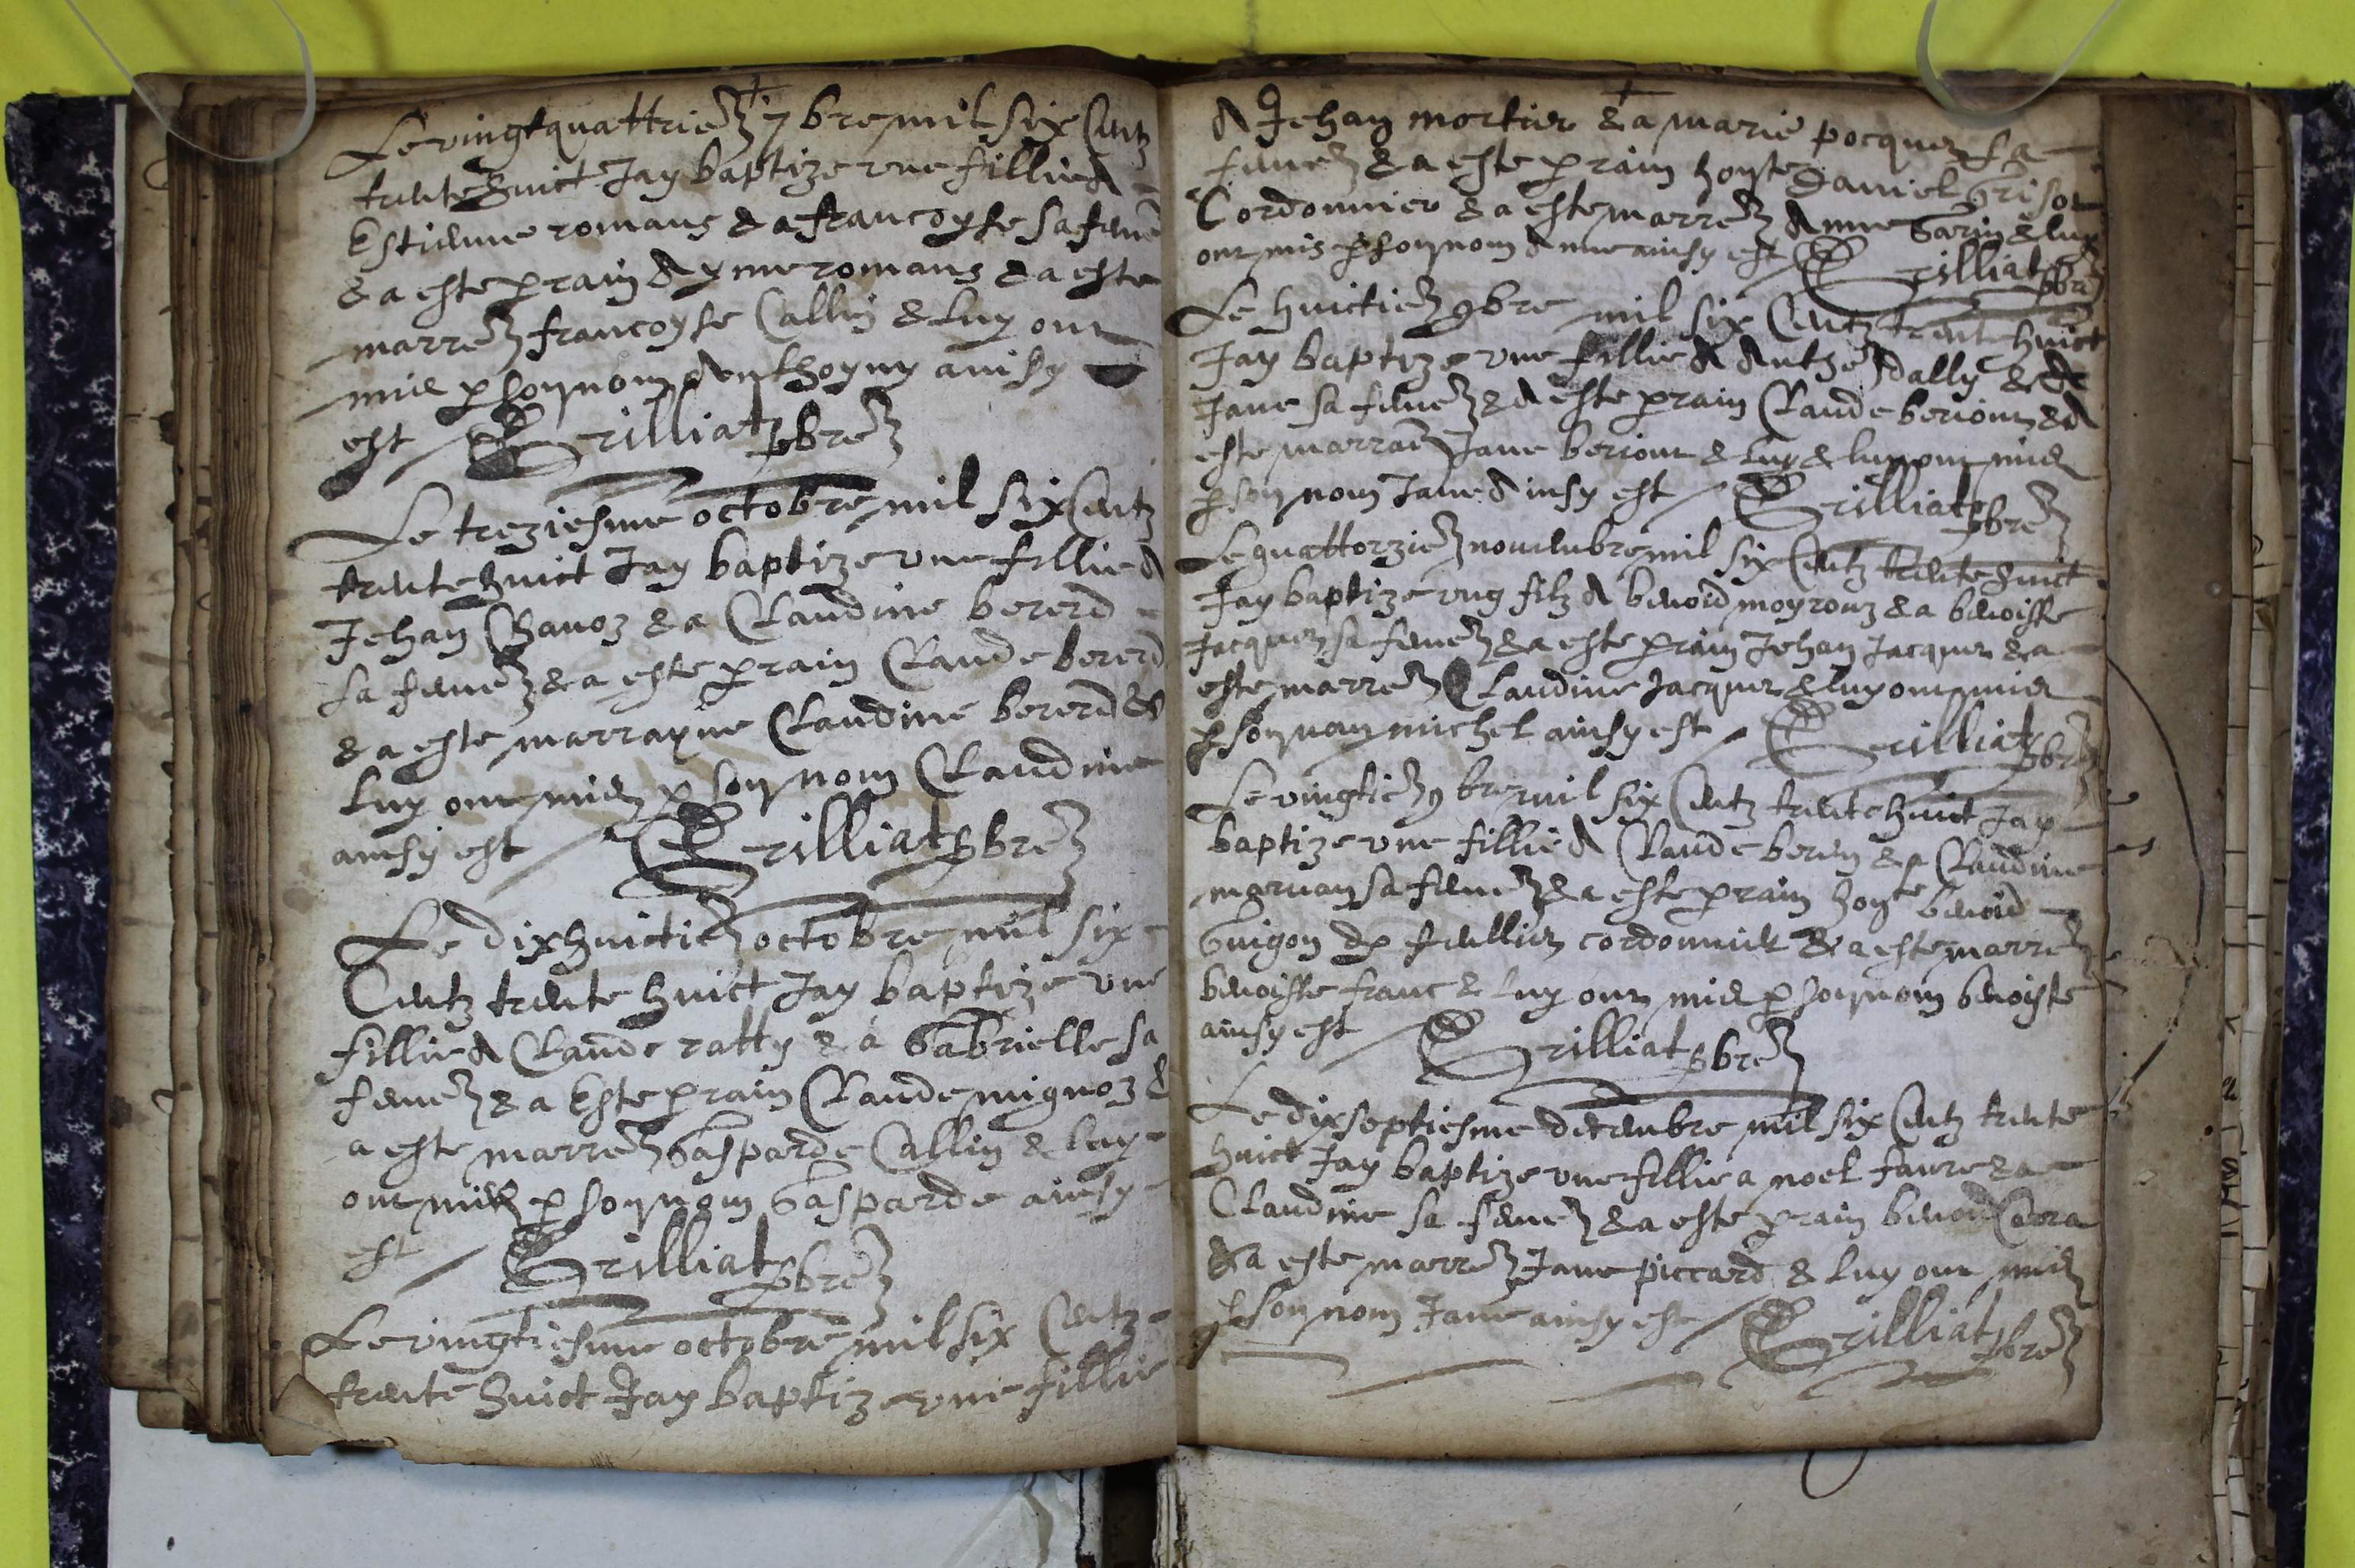 Le vingt quattrie 7bre mil six Centz
trente huict Jay baptize une fillie A
Estienne romans & a francoyse sa feme
& a este prain Aymeromans & a este
marre francoyse Callin & luy ont
mis p son nom Anthoyny ainsy
est Grilliat pbre
Le treziesme octobre mil six Centz
trente huict Jay baptize une fillie A
Jehan Chavoz & a Claudine bererd
sa feme & a este prain Claude bererd
& a este marrayne Claudine bererd &
luy ont mis p son nom Claudine
ainsy est Grilliat pbre
Le dixhuictie octobre mil six
Centz trente huict Jay baptize une
fillie A Claude ratty & a Gabrielle sa
feme & a Este prain Claude mignoz &
a este marre Gasparde Callin & luy
ont mis p son nom Gasparde ainsy
est Grilliat pbre
Le vingtiesme octobre mil six Centz
trente huict Jay baptize une fillie
A Jehan mortier & a marie pocquet sa
feme & a este prain honste Daniel Grisot
Cordonnier & a este marre Anne Garin & luy
ont mis p son nom Anne ainsy est Grilliat pbre
Le huictie 9bre mil six Centz trente huict
Jay baptize une fillie A dally & A
Jane sa feme & A este prain Claude beriout & A
este marrae Jane beriout & luy & luy ont mis
p son nom Jane Ainsy est Grilliat pbre
Le quattorzie novembre mil six Centz trente huict
Jay baptize ung filz A benoid moyrouz & a benoiste
Jacquet sa feme & a este prain Jehan Jacquet & a
este marre Claudine Jacquet & luy ont mis
p son nom michel ainsy est Grilliat pbre
Le vingtie 9bre mil six Centz trente huict Jay
baptize une fillie A Claude beren & a Claudine
sa feme & a este prain honste benoid
Guigon de cordonnier & a este marre
benoiste franc & luy ont mis p son nom benoiste
ainsy est Grilliat pbre
Le dixseptiesme decembre mil six Centz trente
huict Jay baptize une fillie a noel faure & a
Claudine sa feme & a este prain benoid
& a este marre Jane piccard & luy ont mis
p son nom Jane ainsy est Grilliat pbre